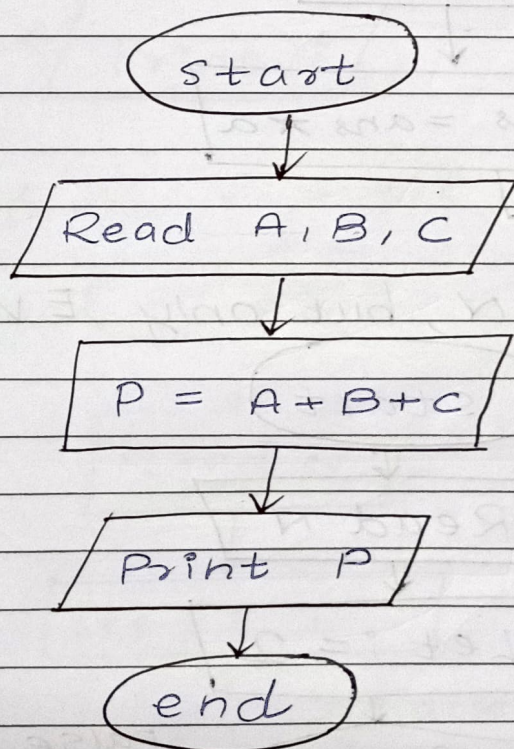 start
Read A, B, C
P = A + B + C
Print P
end